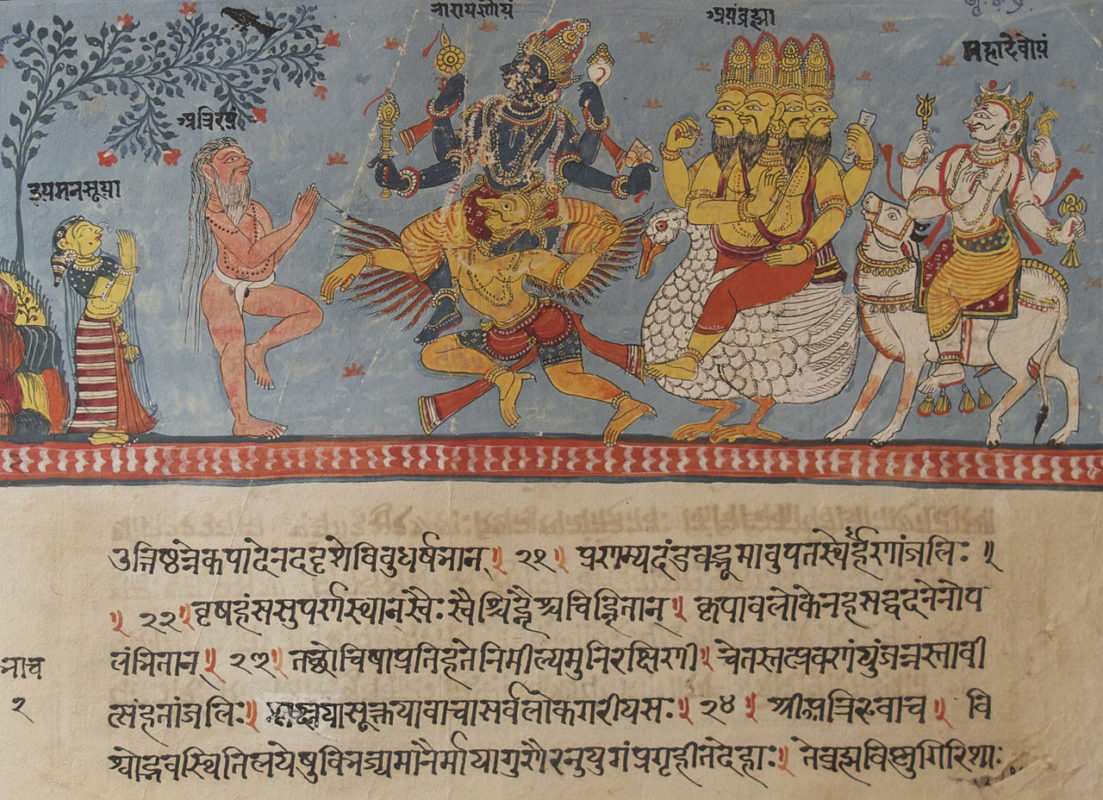 नारायणोयं
अयंब्रह्मा
महादेवोयं
अत्रिरयं
इयमनसूया
उत्तिष्ठन्नेकपादेनददर्शविबुधर्षभान्॥ २१॥ प्रणम्यदंडवद्भूमावुपतस्थेर्हणांजलिः॥
॥ २२॥वृषहंससुपर्णस्थान्स्वैःस्वैश्चिह्नैश्चचिह्नितान्॥ कृपावलोकेनहसद्वदनेनोप
लंभितान्॥ २३॥ तद्रोचिषाप्रतिहतेनिमील्यमुनिरक्षिणी॥ चेतस्तत्प्रवणंयुंजन्नस्तावी
भाच
२
त्संहतांजलिः॥ श्लक्ष्णयासूक्तयावाचासर्वलोकगरीयसः॥ २४॥ श्रीअत्रिरुवाच॥ वि
श्वोद्भवस्थितिलयेषुविभज्यमानैर्मायागुणैरनुयुगंप्रगृहीतदेहाः॥ तेब्रह्मविष्णुगिरिशाः